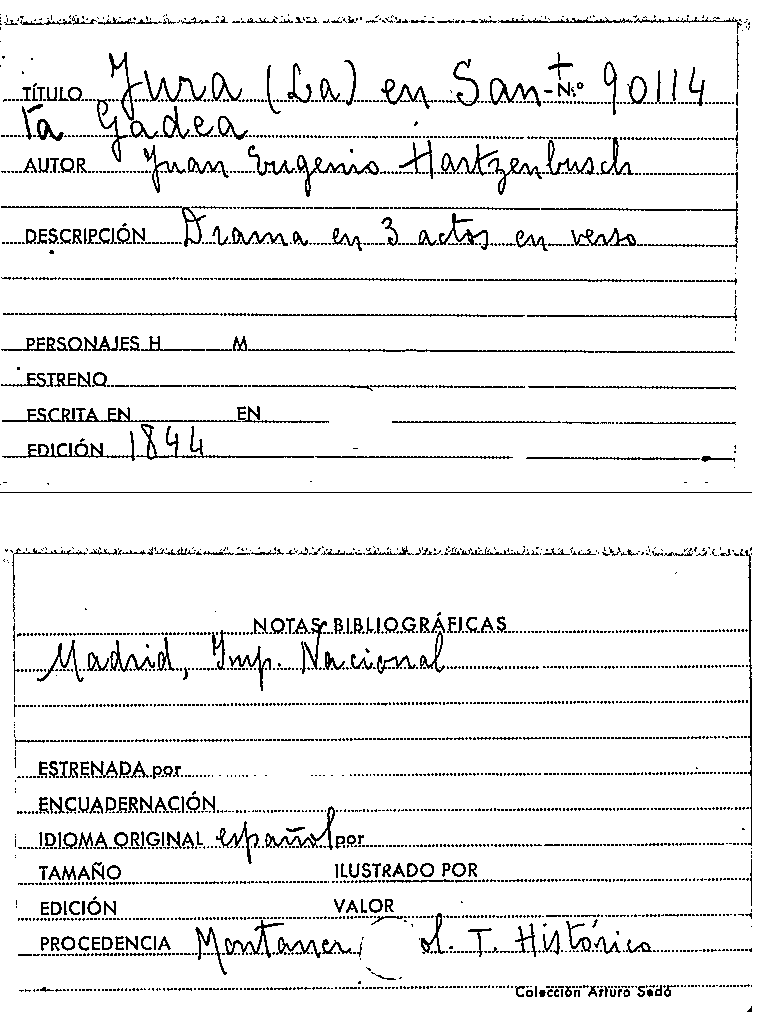 TÍTULO Jura (La) en San- N.º 90114
ta Gadea
AUTOR Juan Eugenio Hartzenbusch
DESCRIPCIÓN Drama en 3 actos en verso
PERSONAJES H M
ESTRENO
ESCRITA EN EN
EDICIÓN 1844
NOTAS BIBLIOGRÁFICAS
Madrid, Imp. Nacional
ESTRENADA por
ENCUADERNACIÓN
IDIOMA ORIGINAL español por
TAMAÑO ILUSTRADO POR
EDICIÓN VALOR
PROCEDENCIA Montaner T. Histórico
Colección Arturo Sedó